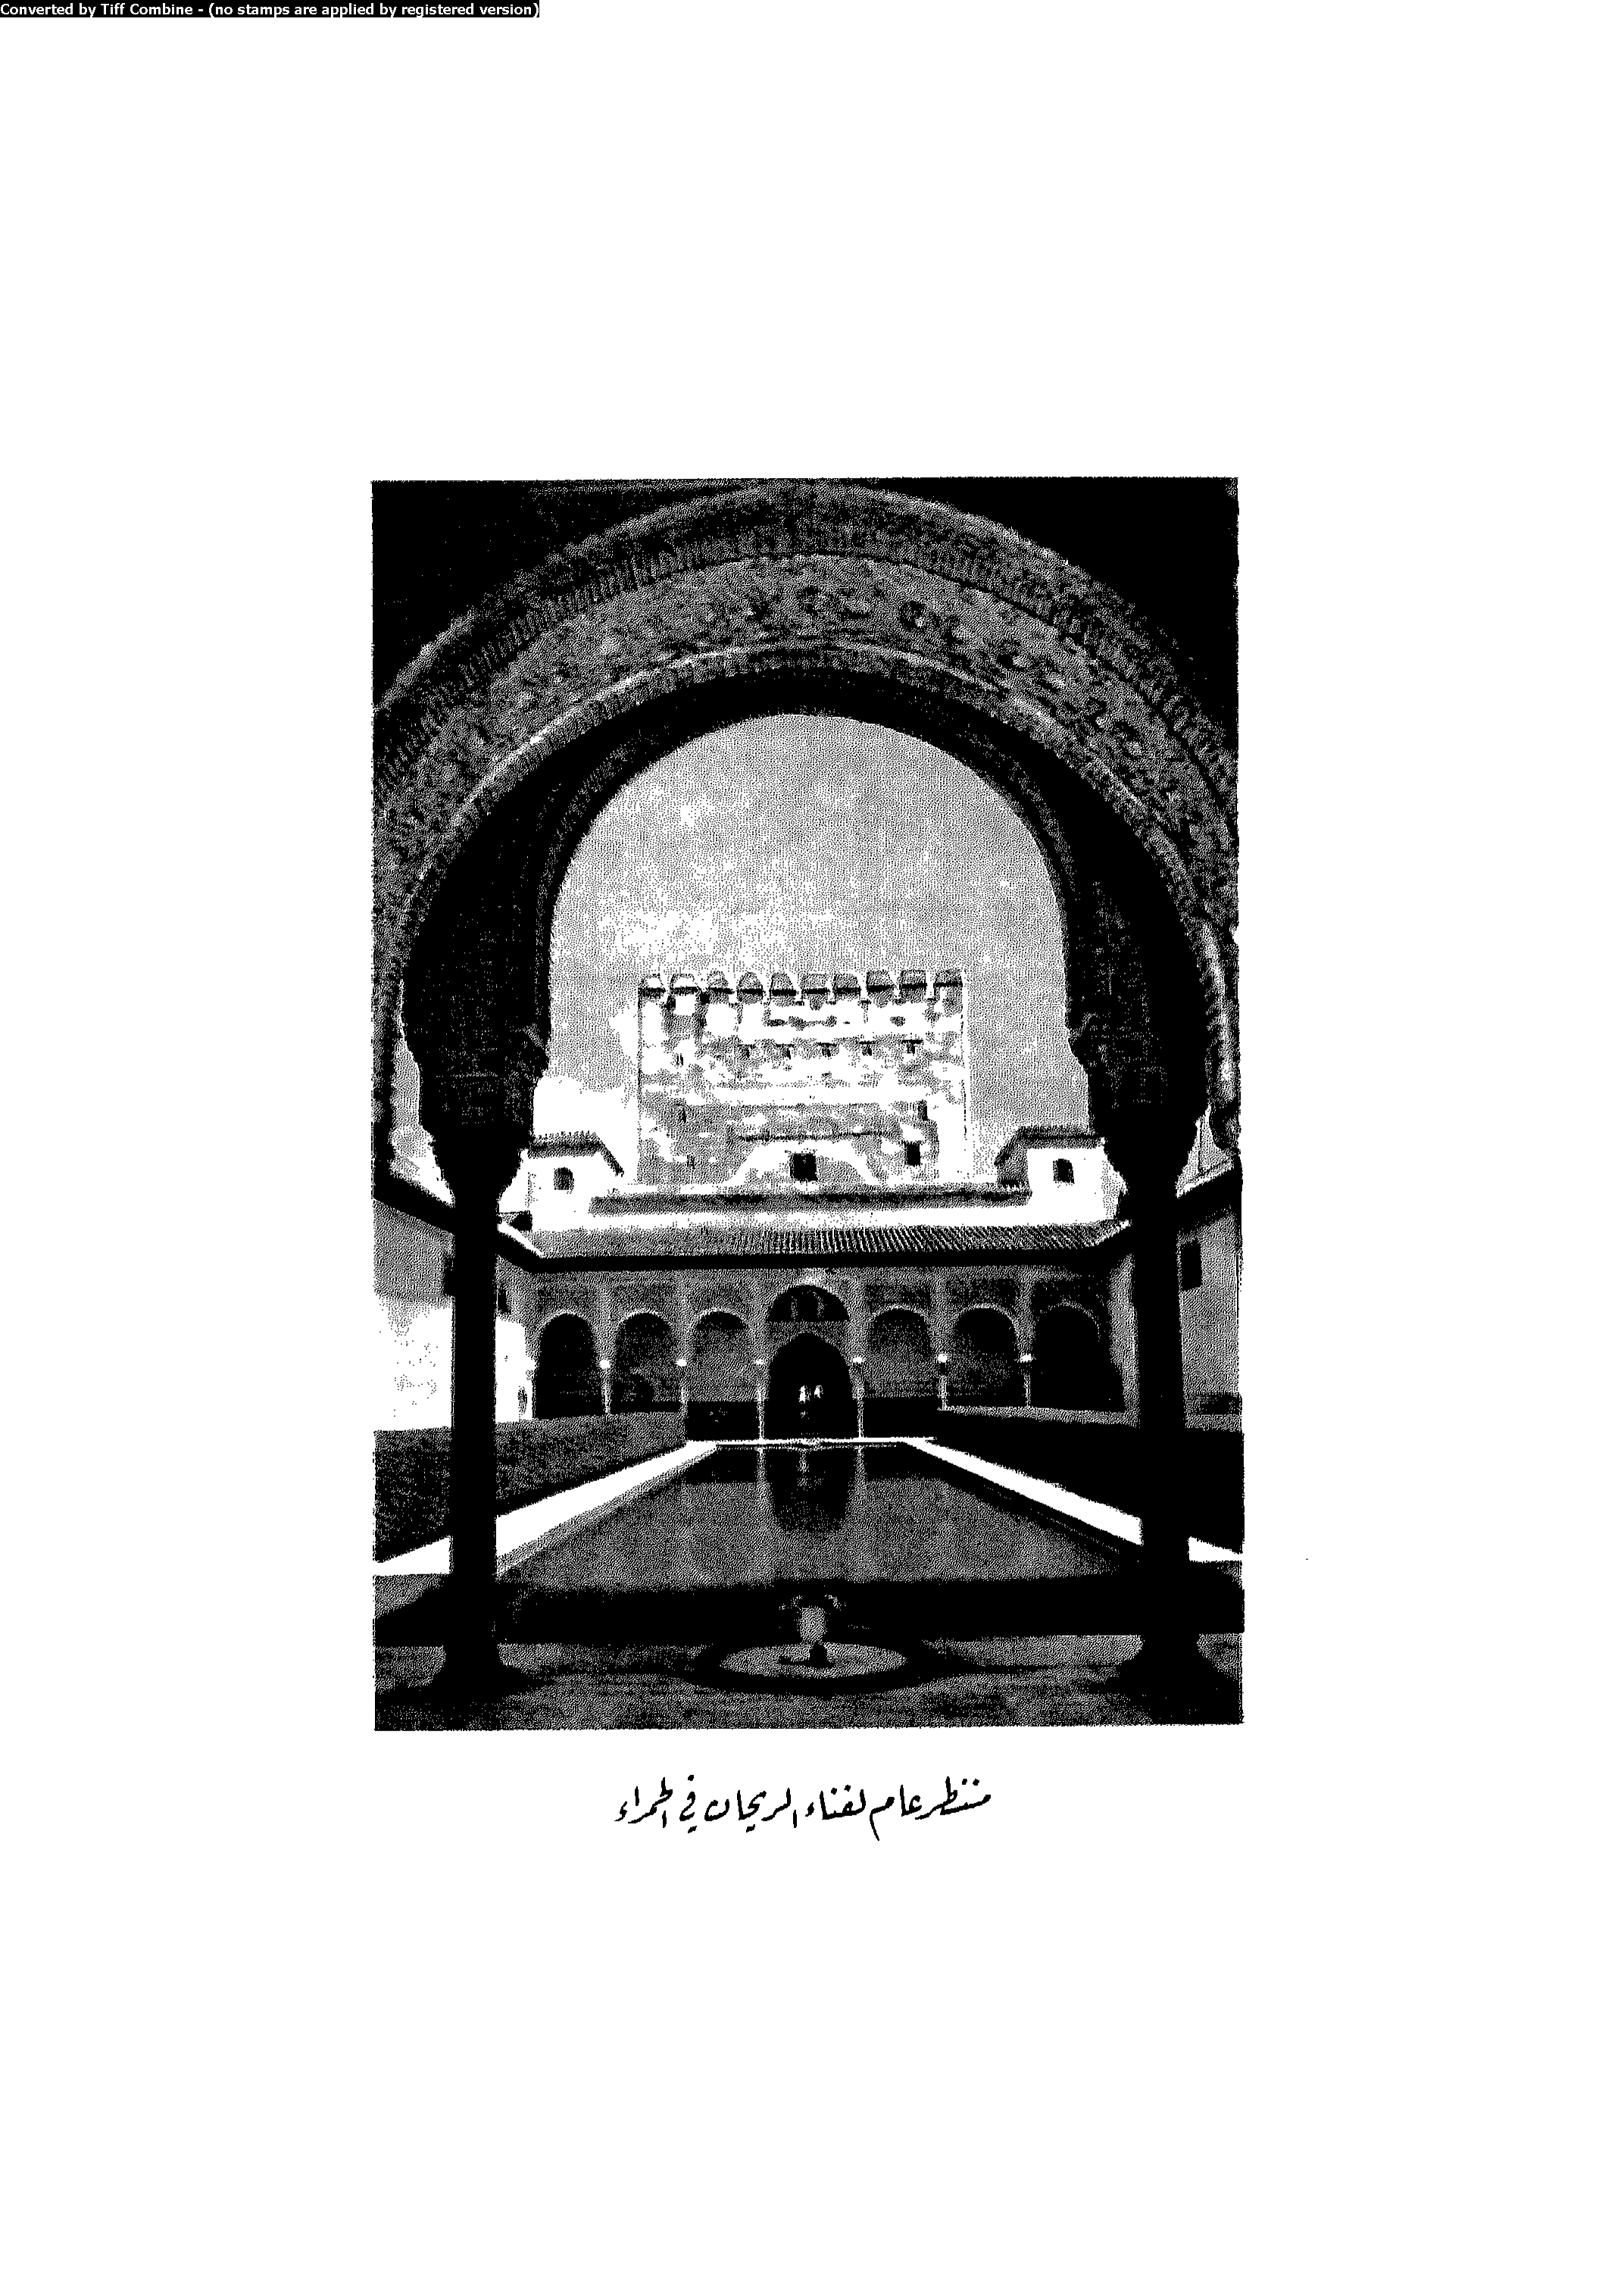 Converted by Tiff Combine - (no stamps are applied by registered version)
منظر عام لفناء الريحان في الحمراء